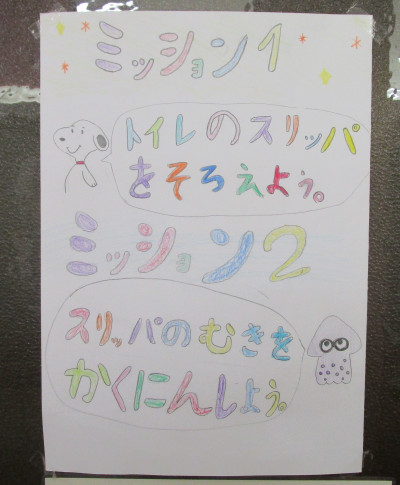 ミッション1
トイレのスリッパ
をそろえよう。
ミッション2
スリッパのむきを
かくにんしよう。